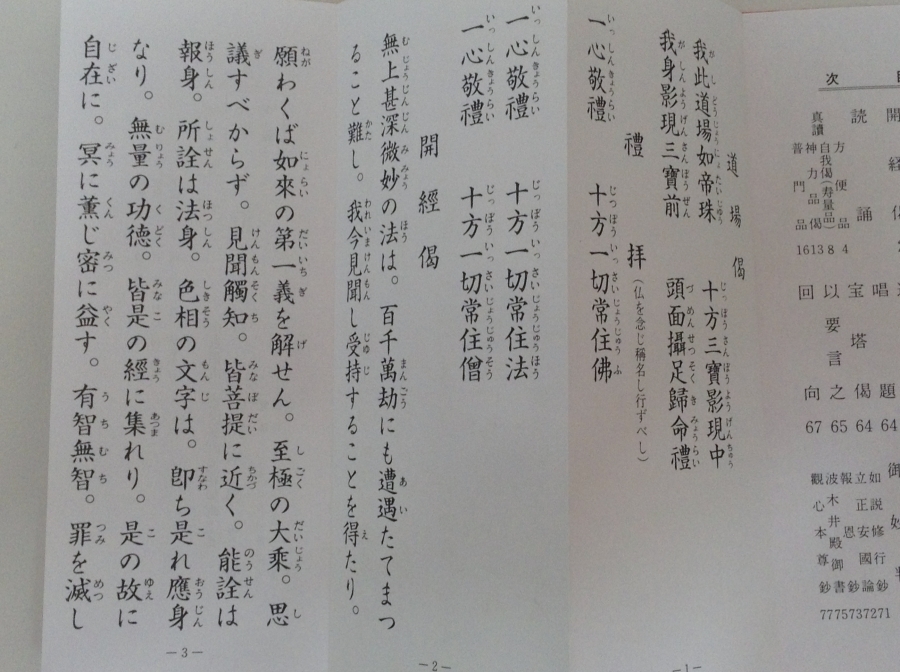 目次
方便品 4
自我偈(寿量品) 8
神力品 13
普門品 16
宝塔偈 64
以要言之 65
回向 67
如説修行鈔 71
立正安國論 72
報恩鈔 73
波木井殿御書 75
觀心本尊鈔 77
道場偈
我此道場如帝珠 十方三寶影現中
我身影現三寶前 頭面攝足歸命禮
禮拜(仏を念じ稱名し行ずべし)
一心敬禮 十方一切常住佛
－1－
一心敬禮 十方一切常住法
一心敬禮 十方一切常住僧
開經偈
無上甚深微妙の法は。百千萬劫にも遭遇たてまつ
ること難し。我今見聞し受持することを得たり。
－2－
願わくば如來の第一義を解せん。至極の大乘。思
議すべからず。見聞觸知。皆菩提に近く。能詮は
報身。所詮は法身。色相の文字は。卽ち是れ應身
なり。無量の功德。皆是の經に集れり。是の故に
自在に。冥に薰じ密に益す。有智無智。罪を滅し
－3－